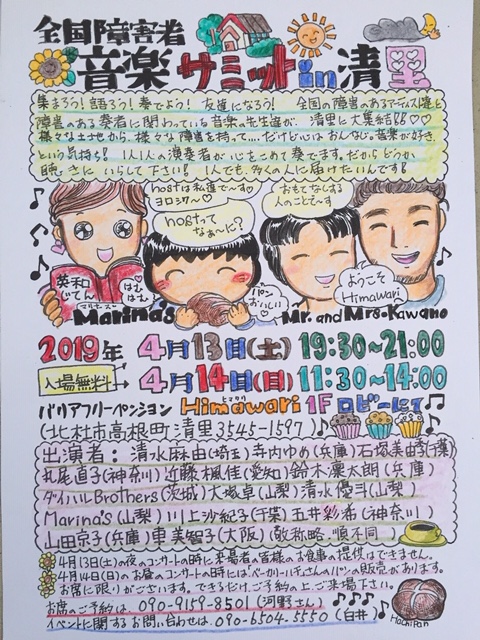 全国障害者
音楽サミットin清里
集まろう!語ろう!奏でよう!友達になろう! 全国の障害のあるアーティスト達と
障害のある奏者に関わっている音楽の先生達が、清里に大集結!!♡♡
様々な土地から、様々な障害を持って…。だけど心はおんなじ。音楽が好き
という気持ち! 1人1人の演奏者が心をこめて奏でます。だからどうか
聴きにいらして下さい! 1人でも、多くの人に届けたいんです!
hostは私達で〜す♡
ヨロシク〜♡
hostって
なぁ〜に?
おもてなしする
人のことも〜す
英和
じてん
はむ
はむ
パン
おいしい
♡
ようこそ
Himawari
Marina's
マリナーズ
Mr. and Mrs. Kawano
2019年 4月13日(土) 19:30~21:00
入場無料 4月14日(日) 11:30~14:00
バリアフリーペンション Himawari 1F ロビーにて
ヒマワリ
(北杜市高根町清里3545-1597)
出演者: 清水麻由(埼玉) 寺内ゆめ(兵庫) 石塚美由季(千葉)
丸尾直子(神奈川) 近藤楓佳(愛知) 鈴木凜太朗(兵庫)
ダイハルBrothers(茨城) 大塚卓(山梨) 清水優斗(山梨)
Marina's(山梨) 川上沙紀子(千葉) 五井紗希(神奈川)
山田京子(兵庫) 東美智子(大阪) (敬称略・順不同)
4月13日(土)の夜のコンサートの時に来場者の皆様のお食事の提供はできません。
4月14日(日)のお昼のコンサートの時にはベーカリーハチさんのパンの販売が有ります。
お席に限りがございます。できるだけ、ご予約の上、ご来場下さい。
お席のご予約は、090-9159-8501(河野さん)
イベントに関するお問い合わせは、090-6504-5550(白井)
Hachi Pan